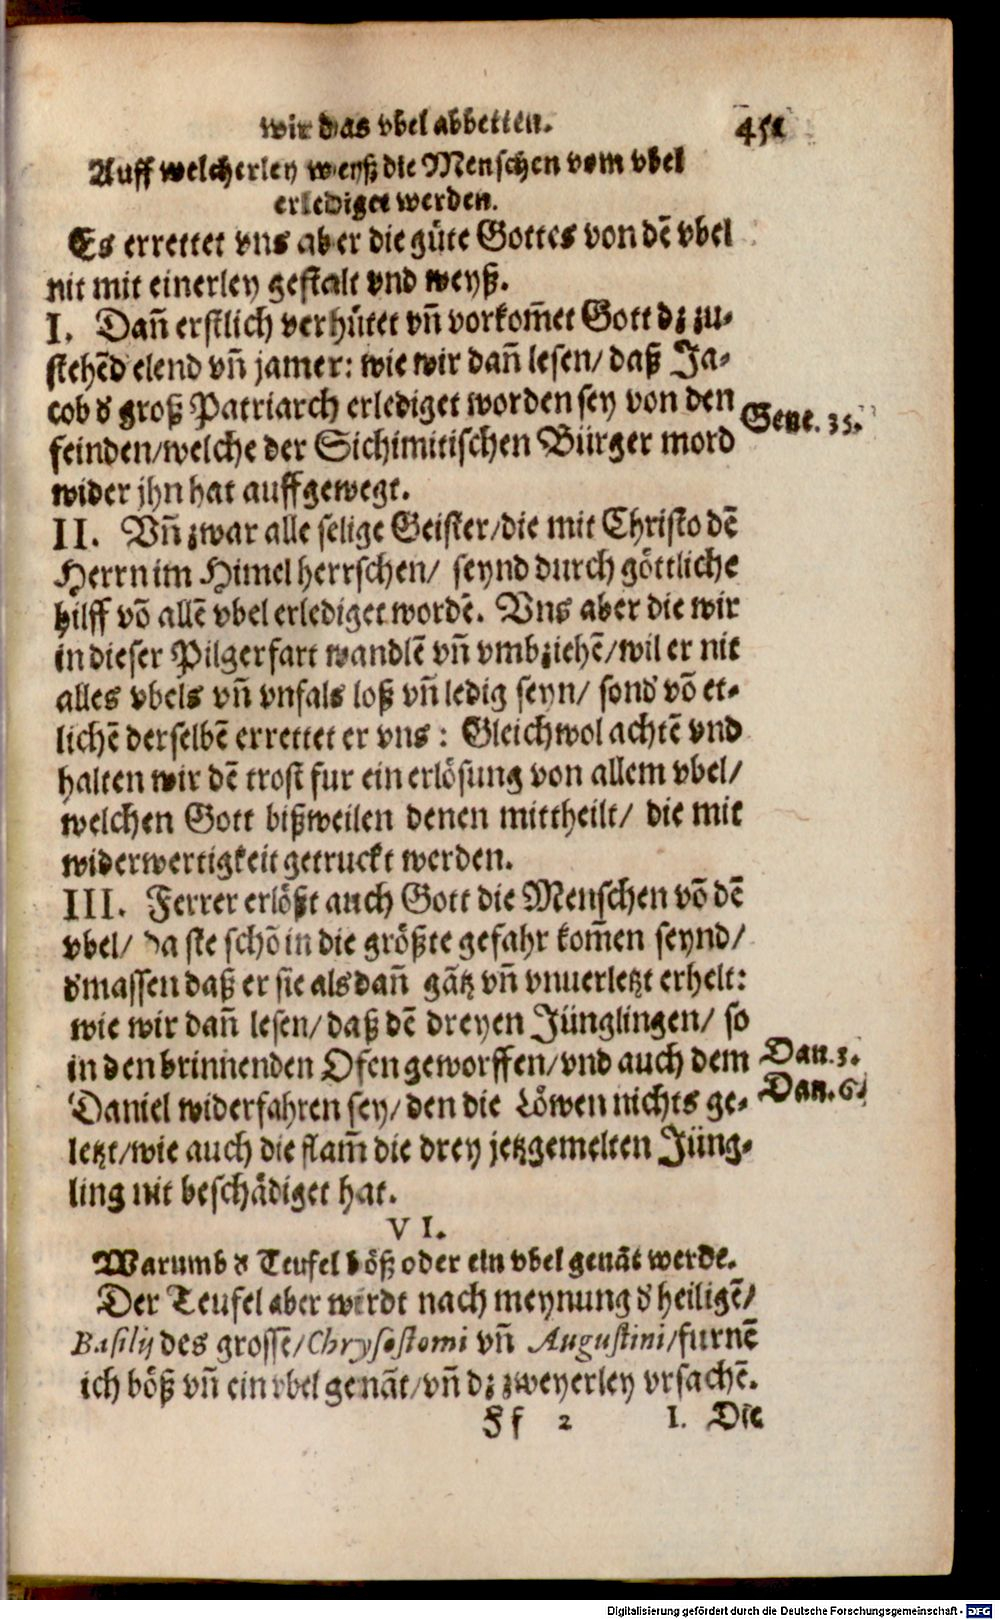 wir das vbel abbetten. 451
Auff welcherley weyß die Menschen vom vbel
erlediget werden.
Es errettet vns aber die güte Gottes von dē vbel
nit mit einerley gestalt vnd weyß.
I. Dañ erstlich verhütet vñ vorkom̄et Gott dz zu-
stehēd elend vñ jamer: wie wir dañ lesen/ daß Ja-
cob d' groß Patriarch erlediget worden sey von den
Gene. 35.
feinden/welche der Sichimitischen Bürger mord
wider jhn hat auffgewegt.
II. Vñ zwar alle selige Geister/die mit Christo dē
Herrn im Himel herrschen/ seynd durch göttliche
hilff vō allē vbel erlediget wordē. Vns aber die wir
in dieser Pilgerfart wandlē vñ vmbziehē/wil er nit
alles vbels vñ vnfals loß vñ ledig seyn/ sond' vō et-
lichē derselbē errettet er vns: Gleichwol achtē vnd
halten wir dē trost fur ein erlösung von allem vbel/
welchen Gott bißweilen denen mittheilt/ die mit
widerwertigkeit getruckt werden.
III. Ferrer erlößt auch Gott die Menschen vō dē
vbel/ da sie schō in die größte gefahr kom̄en seynd/
d'massen daß er sie als dañ gātz vñ vnuerletzt erhelt:
wie wir dañ lesen/ daß dē dreyen Jünglingen/ so
in den brinnenden Ofen geworffen/vnd auch dem
Dan. 3.
Daniel widerfahren sey/ den die Löwen nichts ge-
Dan. 6.
letzt/wie auch die flam̄ die drey jetzgemelten Jüng-
ling nit beschädiget hat.
VI.
Warumb d' Teufel böß oder ein vbel genāt werde.
Der Teufel aber wirdt nach meynung d' heiligē/
Basilij des grossē/Chrysostomi vñ Augustini/furnē
ich böß vñ ein vbel genāt/vñ dz zweyerley vrsachē.
Ff 2 I. Die
Digitalisierung gefördert durch die Deutsche Forschungsgemeinschaft - DFG